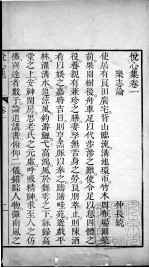 悅心集卷一
樂志論
仲長統
使居有良田廣宅背山臨流溝池環帀竹木四布場圃築
前果園樹後舟車足以代步涉之難使令足以息四體之
役養親有兼珍之膳妻孥無苦身之勞良朋萃止則陳酒
肴以娛之嘉時吉日則亨羔豚以奉之躊躇畦苑遊戲平
林濯清水追涼風釣游鯉弋高鴻風于舞雩之下詠歸高
堂之上安神閨房思老氏之元虛呼吸精和求至人之仿
佛與達者數子論道講書俯仰二儀錯綜人物彈南風之